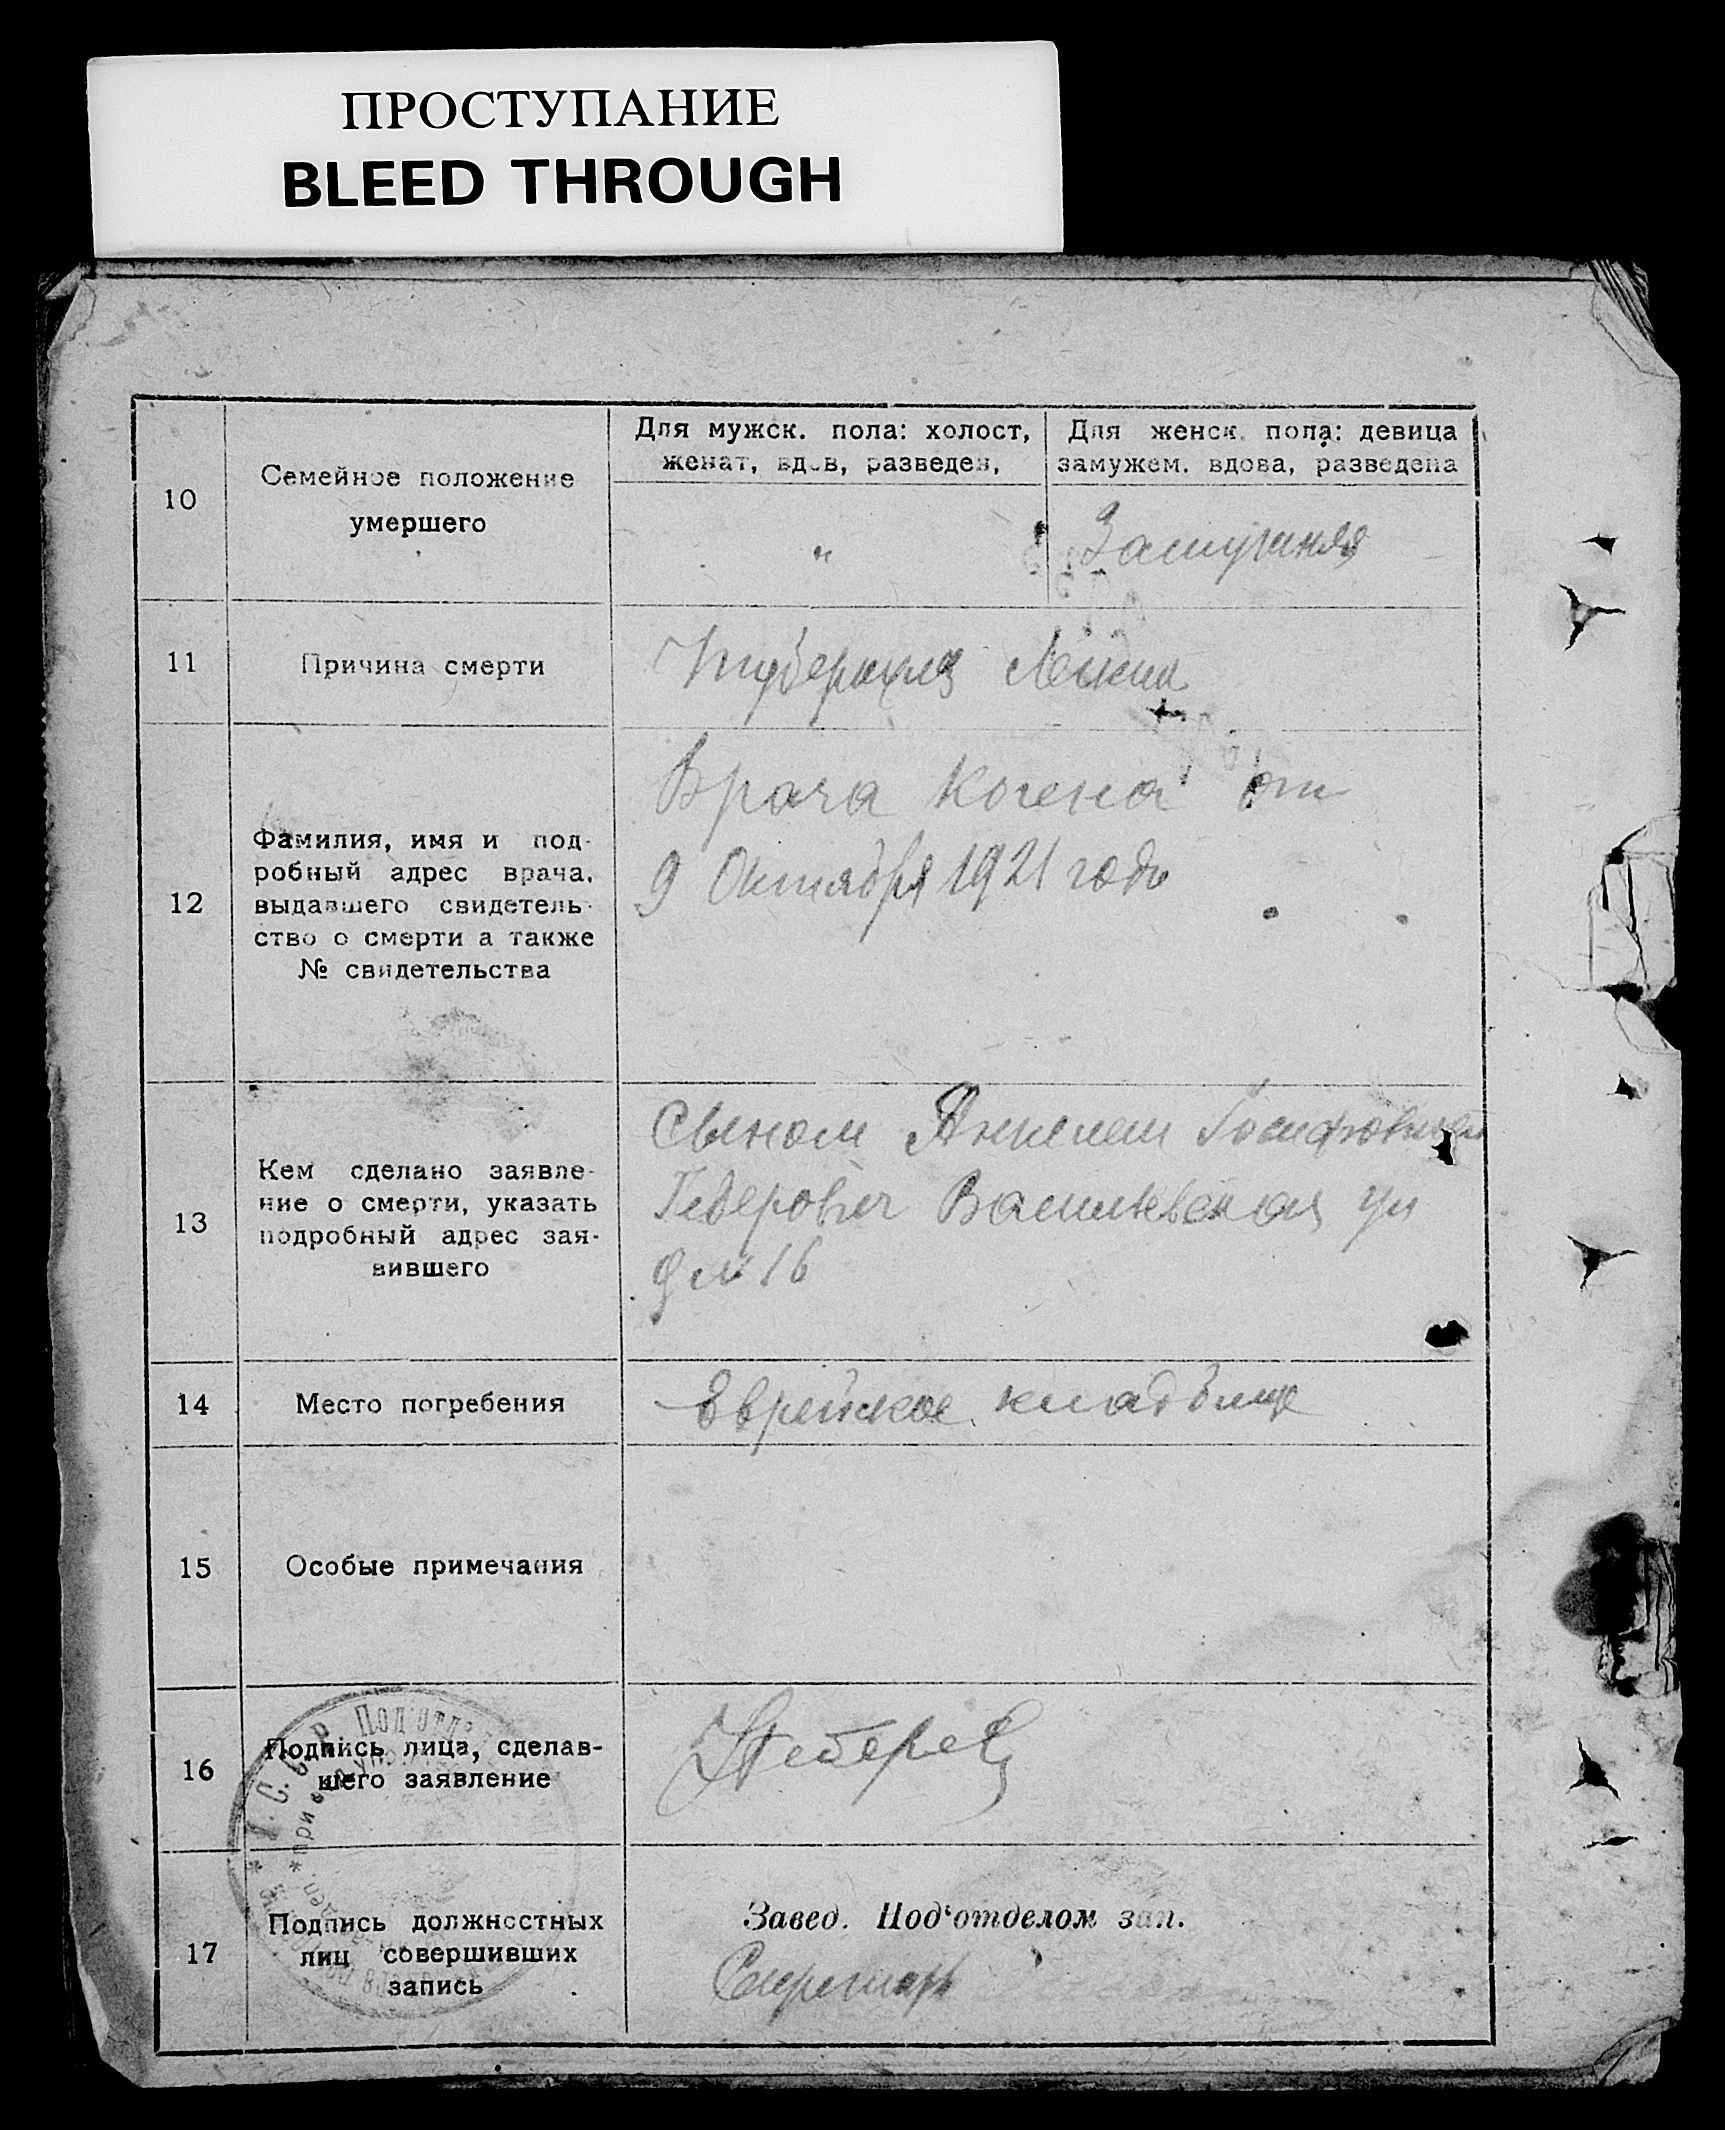 ПРОСТУПАНИЕ
BLEED THROUGH
10
Семейное положение
умершего
Для мужск. пола: холост,
женат, вдов, разведен,
Для женск. пола: девица
замужем. вдова, разведена
"
Замужняя
11
Причина смерти
Туберкулез Легких
12
Фамилия, имя и под-
робный адрес врача,
выдавшего свидетель-
ство о смерти а также
№ свидетельства
Врача Когена от
9 Октября 1921 года
13
Кем сделано заявле-
ние о смерти, указать
подробный адрес зая-
вившего
Сыном Иосифовичем
Васильевская ул
д № 16
14
Место погребения
Еврейское кладбище
15
Особые примечания
16
Подпись лица, сделав-
шего заявление
17
Подпись должностных
лиц совершивших
запись
Завед. Под‘отделом зап.
Секретарь